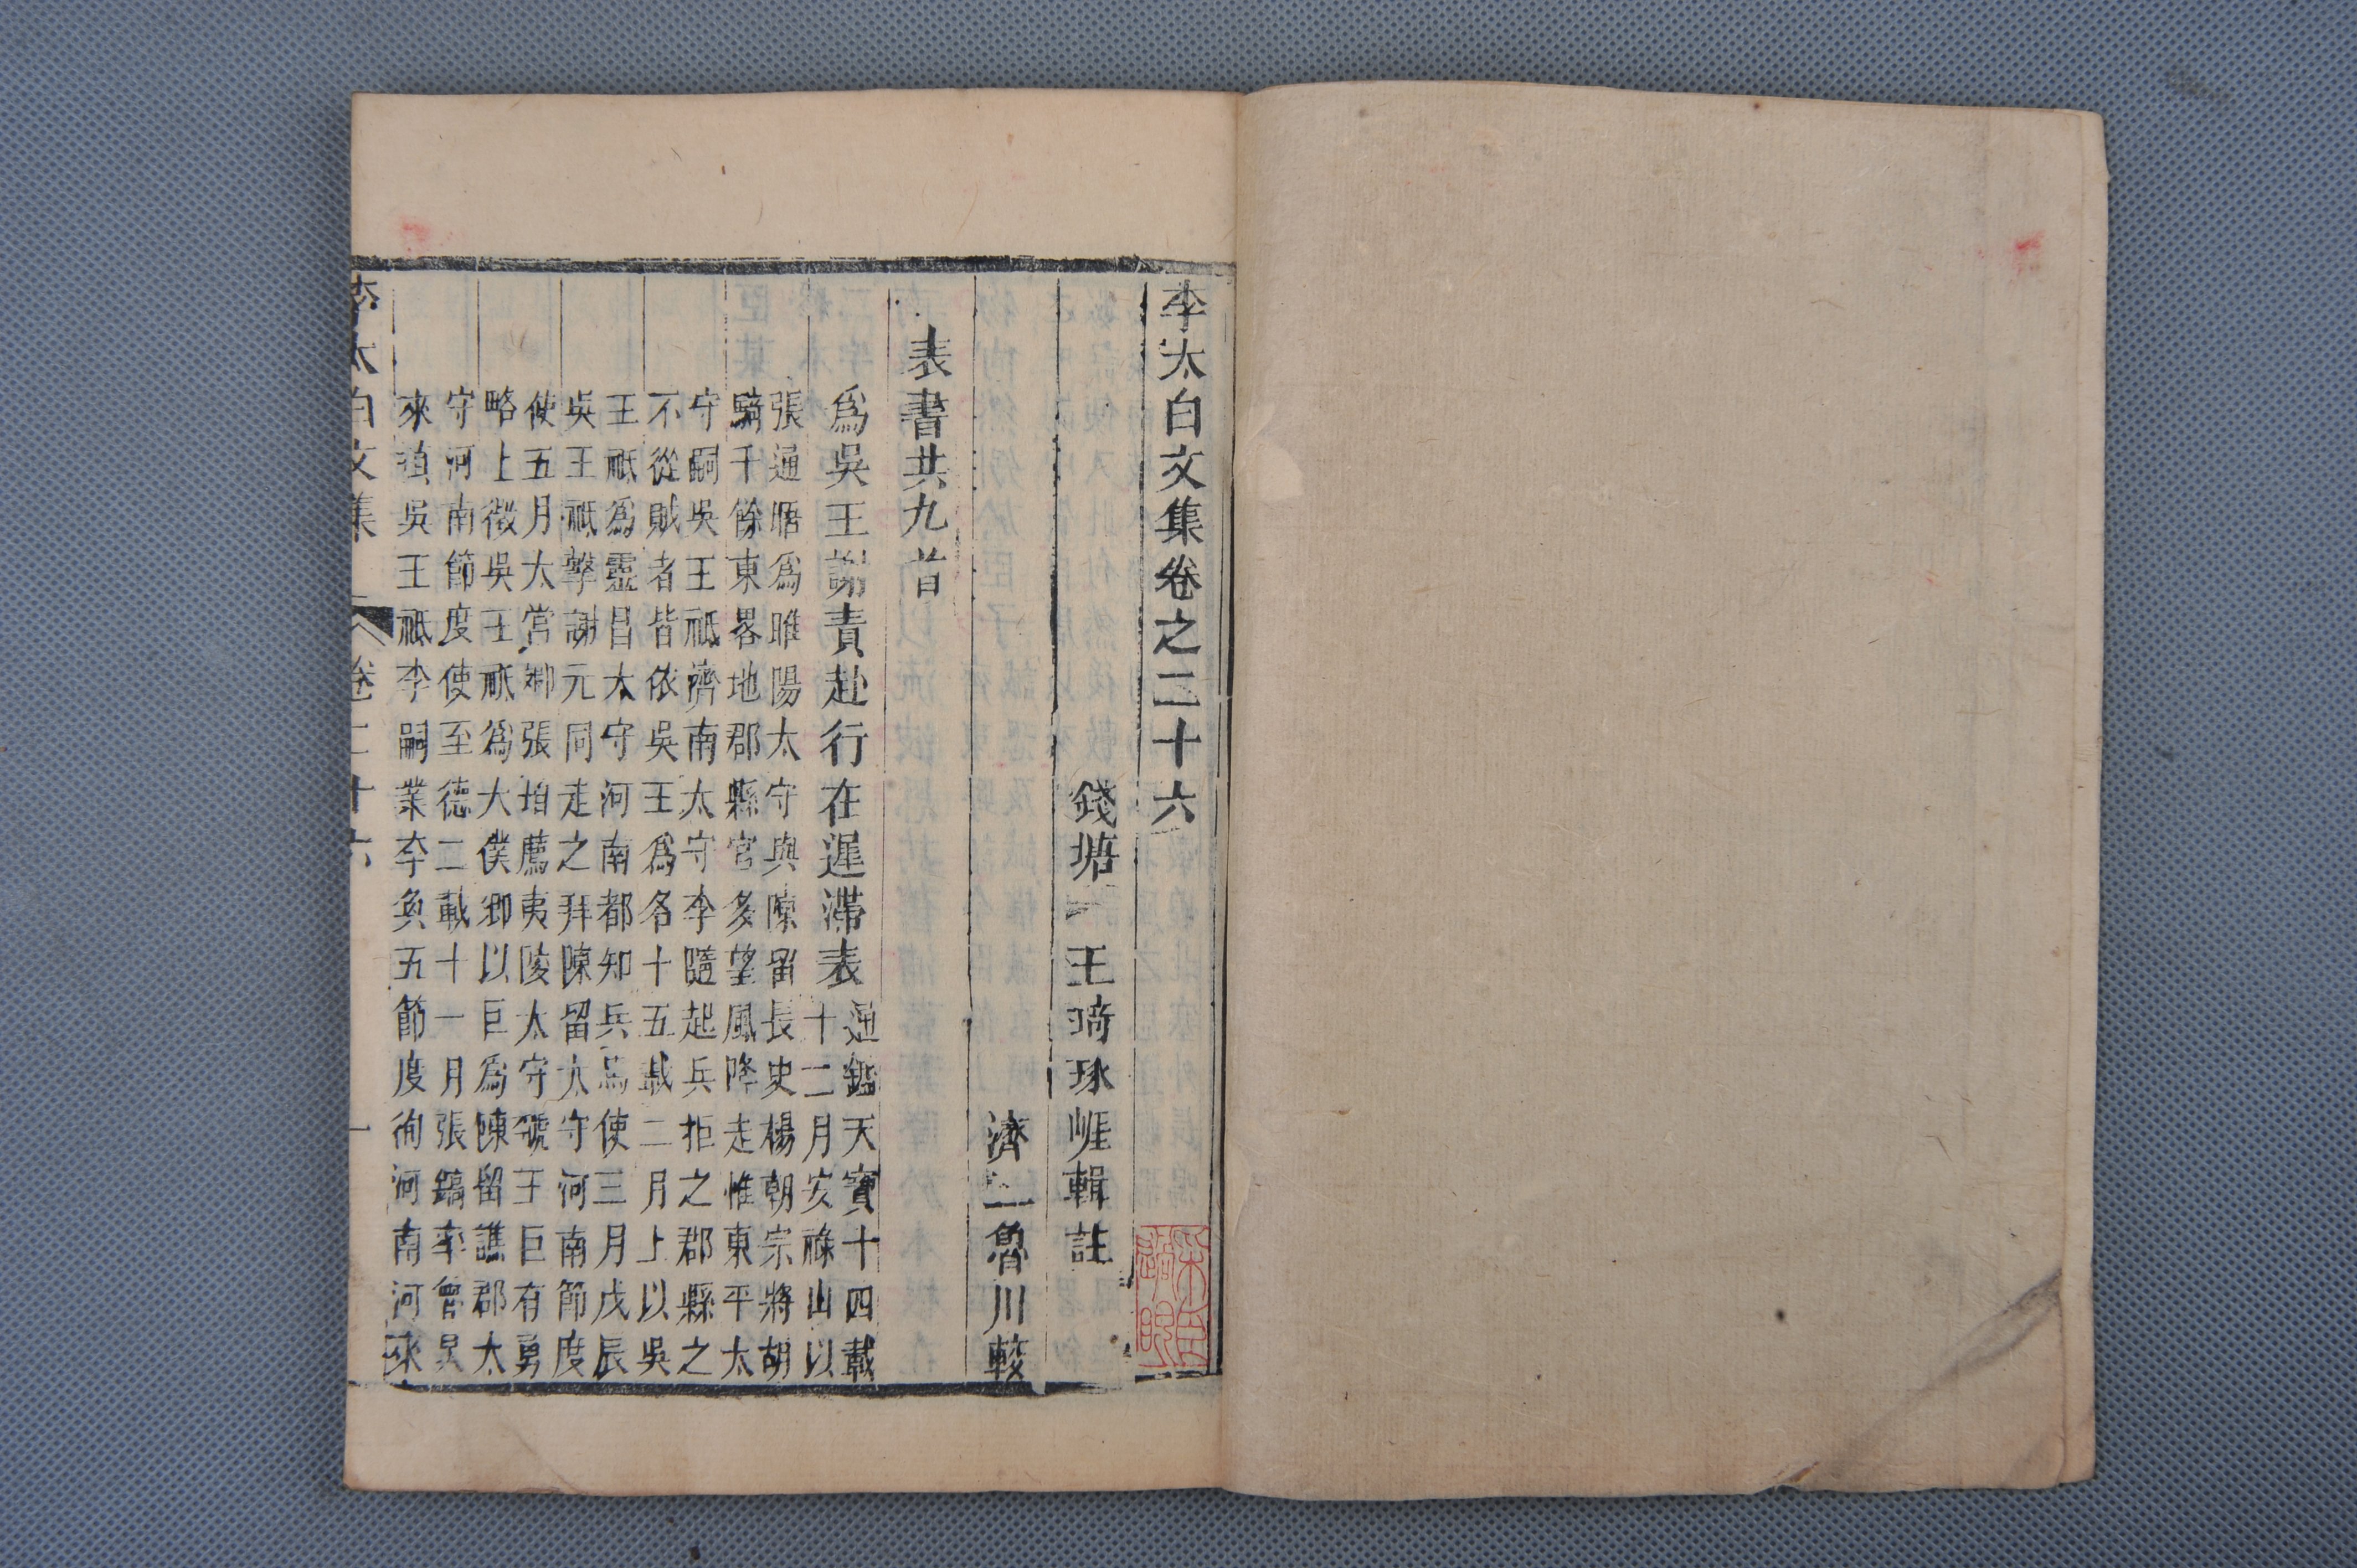 李太白文集卷之二十六
錢塘 王琦琢崖輯註
濟魯川較
表書共九首
爲吳王謝責赴行在遲滯表
通鑑天寶十四載
十二月安祿山以
張通晤爲睢陽太守與陳留長史楊朝宗將胡
騎千餘東畧地郡縣官多望風降走惟東平太
守嗣吳王祗濟南太守李隨起兵拒之郡縣之
不從賊者皆依吳王爲名十五載二月上以吳
王祗爲靈昌太守河南都知兵馬使三月戊辰
吳王祗擊謝元同走之拜陳留太守河南節度
使五月太常卿張垍薦夷陵太守虢王巨有勇
略上徵吳王祗爲太僕卿以巨爲陳留譙郡太
守河南節度使至德二載十一月張鎬率魯炅
來瑱吳王祗李嗣業李奐五節度徇河南河東
李太白文集 卷二十六 一